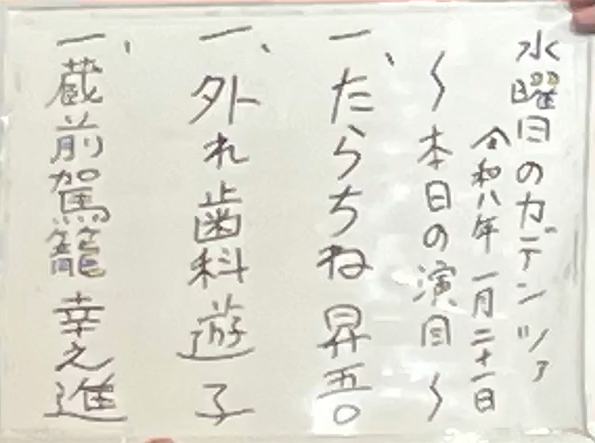 水曜日のカデンツァ
令和八年 一月二十一日
〜本日の演目〜
一、たらちね 昇吾
一、外れ歯科 遊子
一、蔵前駕籠 幸之進